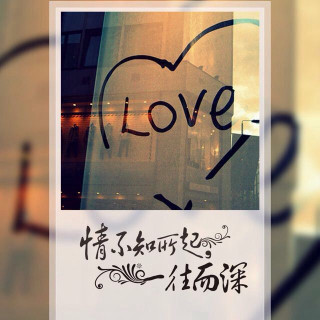 LOVe
情不知所起,
一往而深